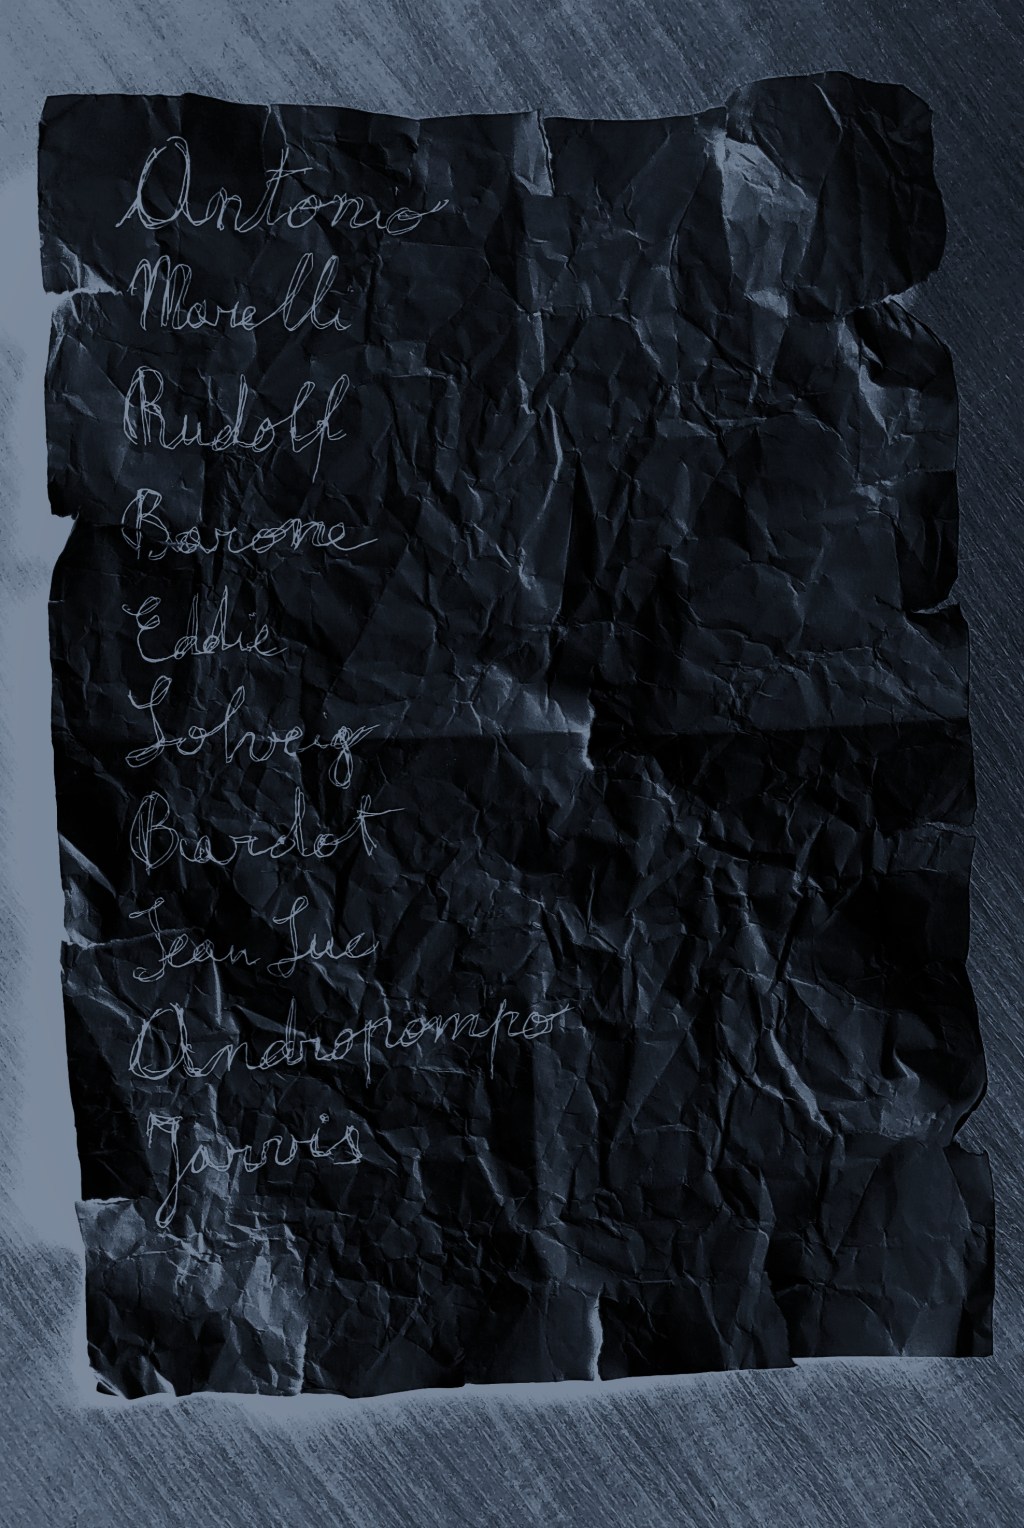 Antonio
Morelli
Rudolf
Barone
Eddie
Solveig
Bardot
Jean Luc
Andropompo
Jarvis